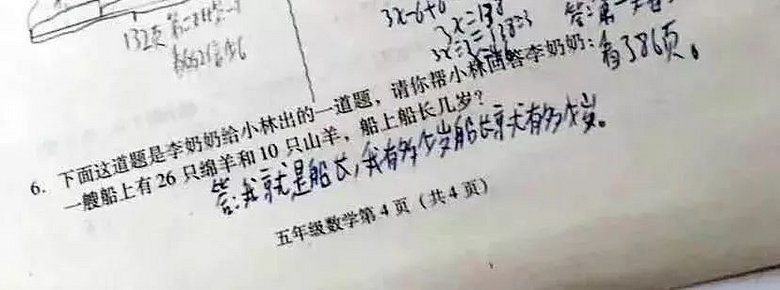 132页
3x-6+6
3x=138
答:第一
有386页。
6. 下面这道题是李奶奶给小林出的一道题,请你帮小林回答李奶奶:
一艘船上有26只绵羊和10只山羊,船上船长几岁?
答:我就是船长,我有多少岁船长就有多少岁。
五年级数学第4页(共4页)